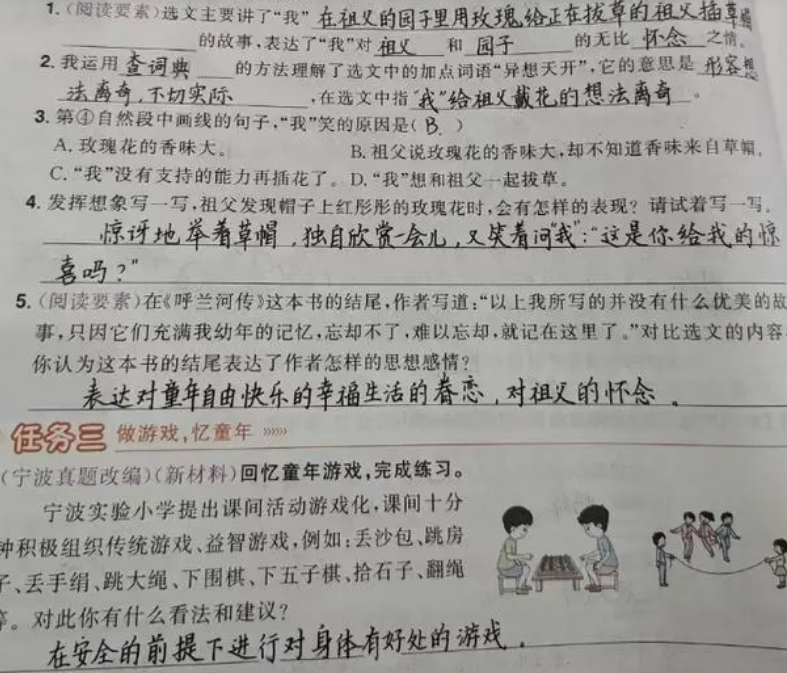 1. (阅读要素)选文主要讲了“我”在祖父的园子里用玫瑰给正在拔草的祖父插草帽
的故事,表达了“我”对 祖父 和 园子 的无比 怀念 之情。
2. 我运用 查词典 的方法理解了选文中的加点词语“异想天开”,它的意思是 形容想
法离奇,不切实际 ,在选文中指“我”给祖父戴花的想法离奇。
3. 第④自然段中画线的句子,“我”笑的原因是( B. )
A. 玫瑰花的香味大。 B. 祖父说玫瑰花的香味大,却不知道香味来自草帽。
C. “我”没有支持的能力再插花了。 D. “我”想和祖父一起拔草。
4. 发挥想象写一写,祖父发现帽子上红彤彤的玫瑰花时,会有怎样的表现?请试着写一写。
惊讶地举着草帽,独自欣赏一会儿,又笑着问“我”:“这是你给我的惊
喜吗?”
5. (阅读要素)在《呼兰河传》这本书的结尾,作者写道:“以上我所写的并没有什么优美的故
事,只因它们充满我幼年的记忆,忘却不了,难以忘却,就记在这里了。”对比选文的内容
你认为这本书的结尾表达了作者怎样的思想感情?
表达对童年自由快乐的幸福生活的眷恋,对祖父的怀念。
任务三 做游戏,忆童年 »»»
(宁波真题改编)(新材料)回忆童年游戏,完成练习。
宁波实验小学提出课间活动游戏化,课间十分
钟积极组织传统游戏、益智游戏,例如:丢沙包、跳房
子、丢手绢、跳大绳、下围棋、下五子棋、拾石子、翻绳
等。对此你有什么看法和建议?
在安全的前提下进行对身体有好处的游戏.